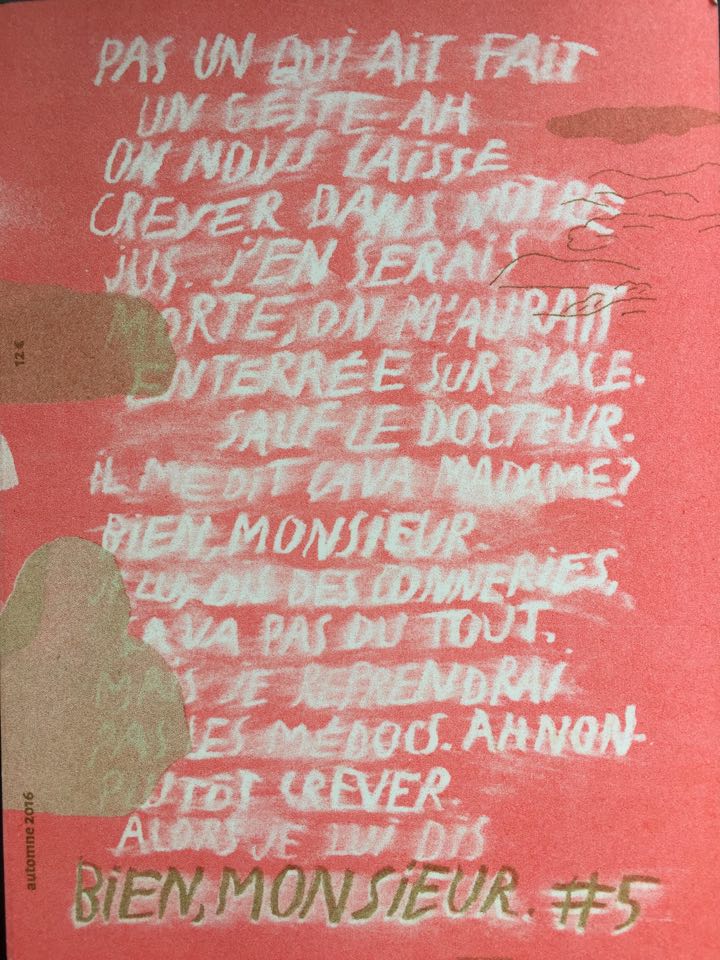 PAS UN QUI AIT FAIT
UN GESTE AH
ON NOUS LAISSE
CREVER DANS NOTRE
JUS. J'EN SERAIS
MORTE, ON M'AURAIT
ENTERRÉE SUR PLACE.
SAUF LE DOCTEUR.
IL ME DIT ÇA VA MADAME?
BIEN, MONSIEUR.
JE LUI DIS DES CONNERIES,
ÇA VA PAS DU TOUT.
MAIS JE REPRENDRAI
PAS LES MÉDOCS. AH NON.
PLUTÔT CREVER.
ALORS JE LUI DIS
BIEN, MONSIEUR. #5
12 €
automne 2016